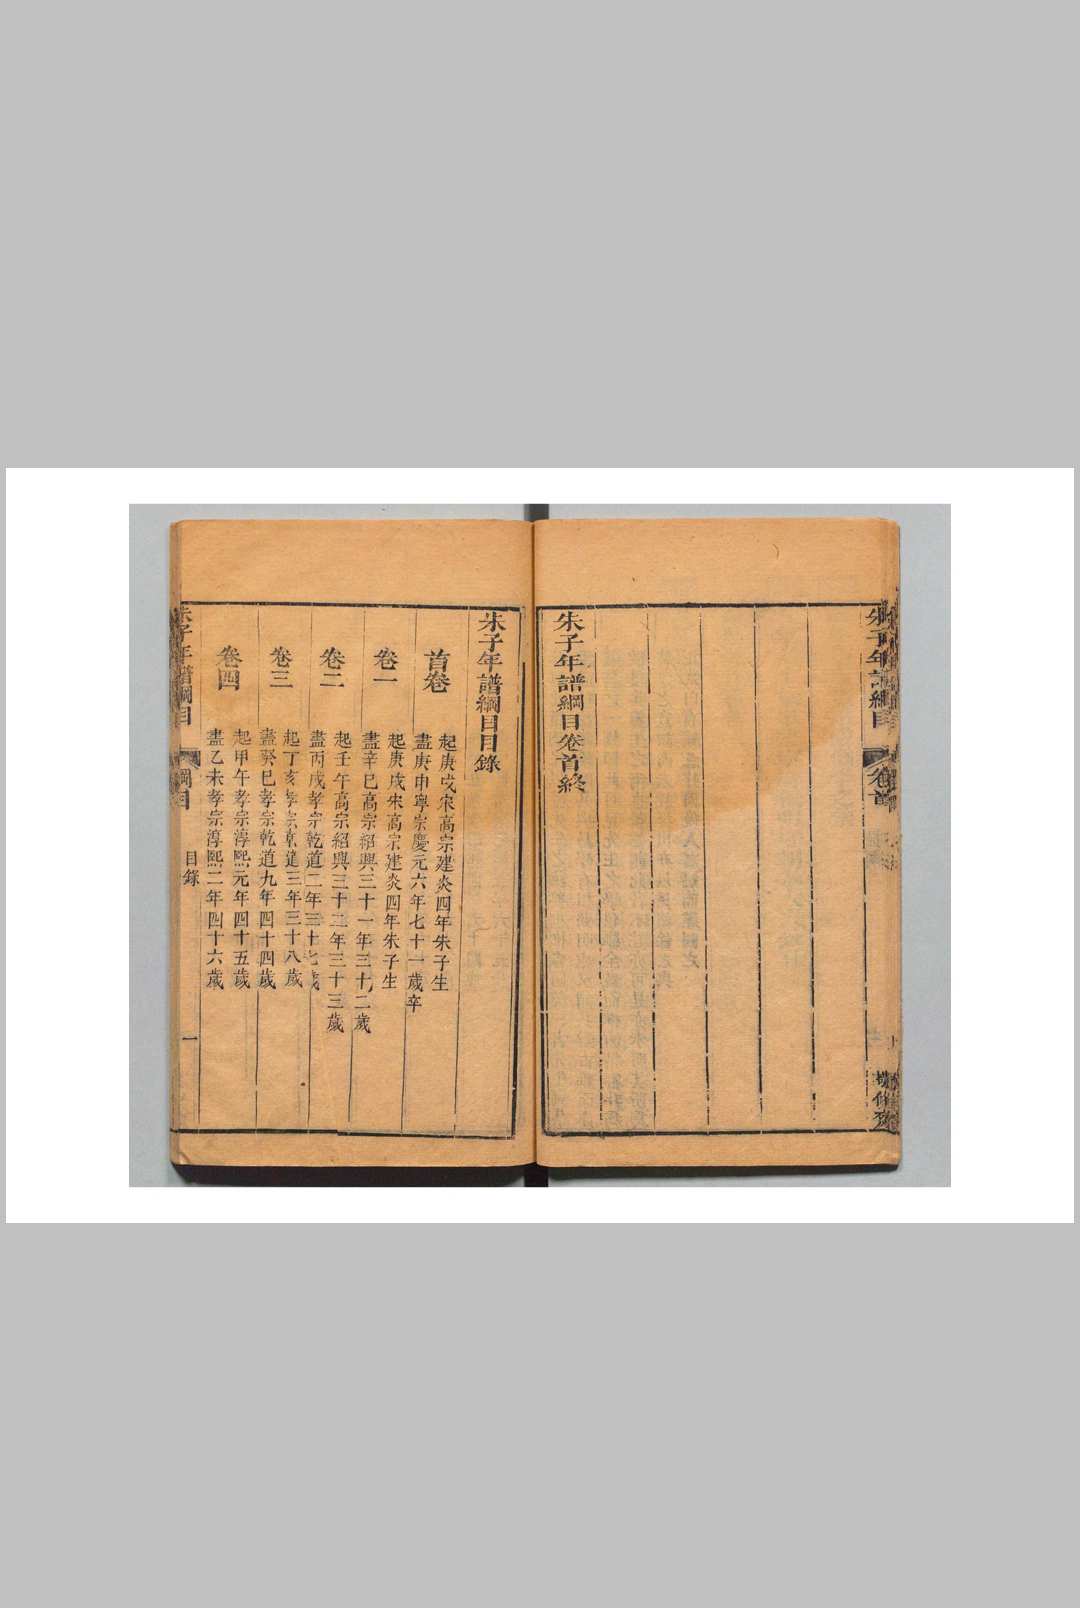 朱子年譜綱目
卷首
朱子年譜綱目卷首終
朱子年譜綱目目錄
首卷
起庚戌宋高宗建炎四年朱子生
盡庚申寧宗慶元六年七十一歲卒
卷一
起庚戌宋高宗建炎四年朱子生
盡辛巳高宗紹興三十一年三十二歲
卷二
起壬午高宗紹興三十二年三十三歲
盡丙戌孝宗乾道二年三十七歲
卷三
起丁亥孝宗乾道三年三十八歲
盡癸巳孝宗乾道九年四十四歲
卷四
起甲午孝宗淳熙元年四十五歲
盡乙未孝宗淳熙二年四十六歲
朱子年譜綱目
綱目
目錄
一